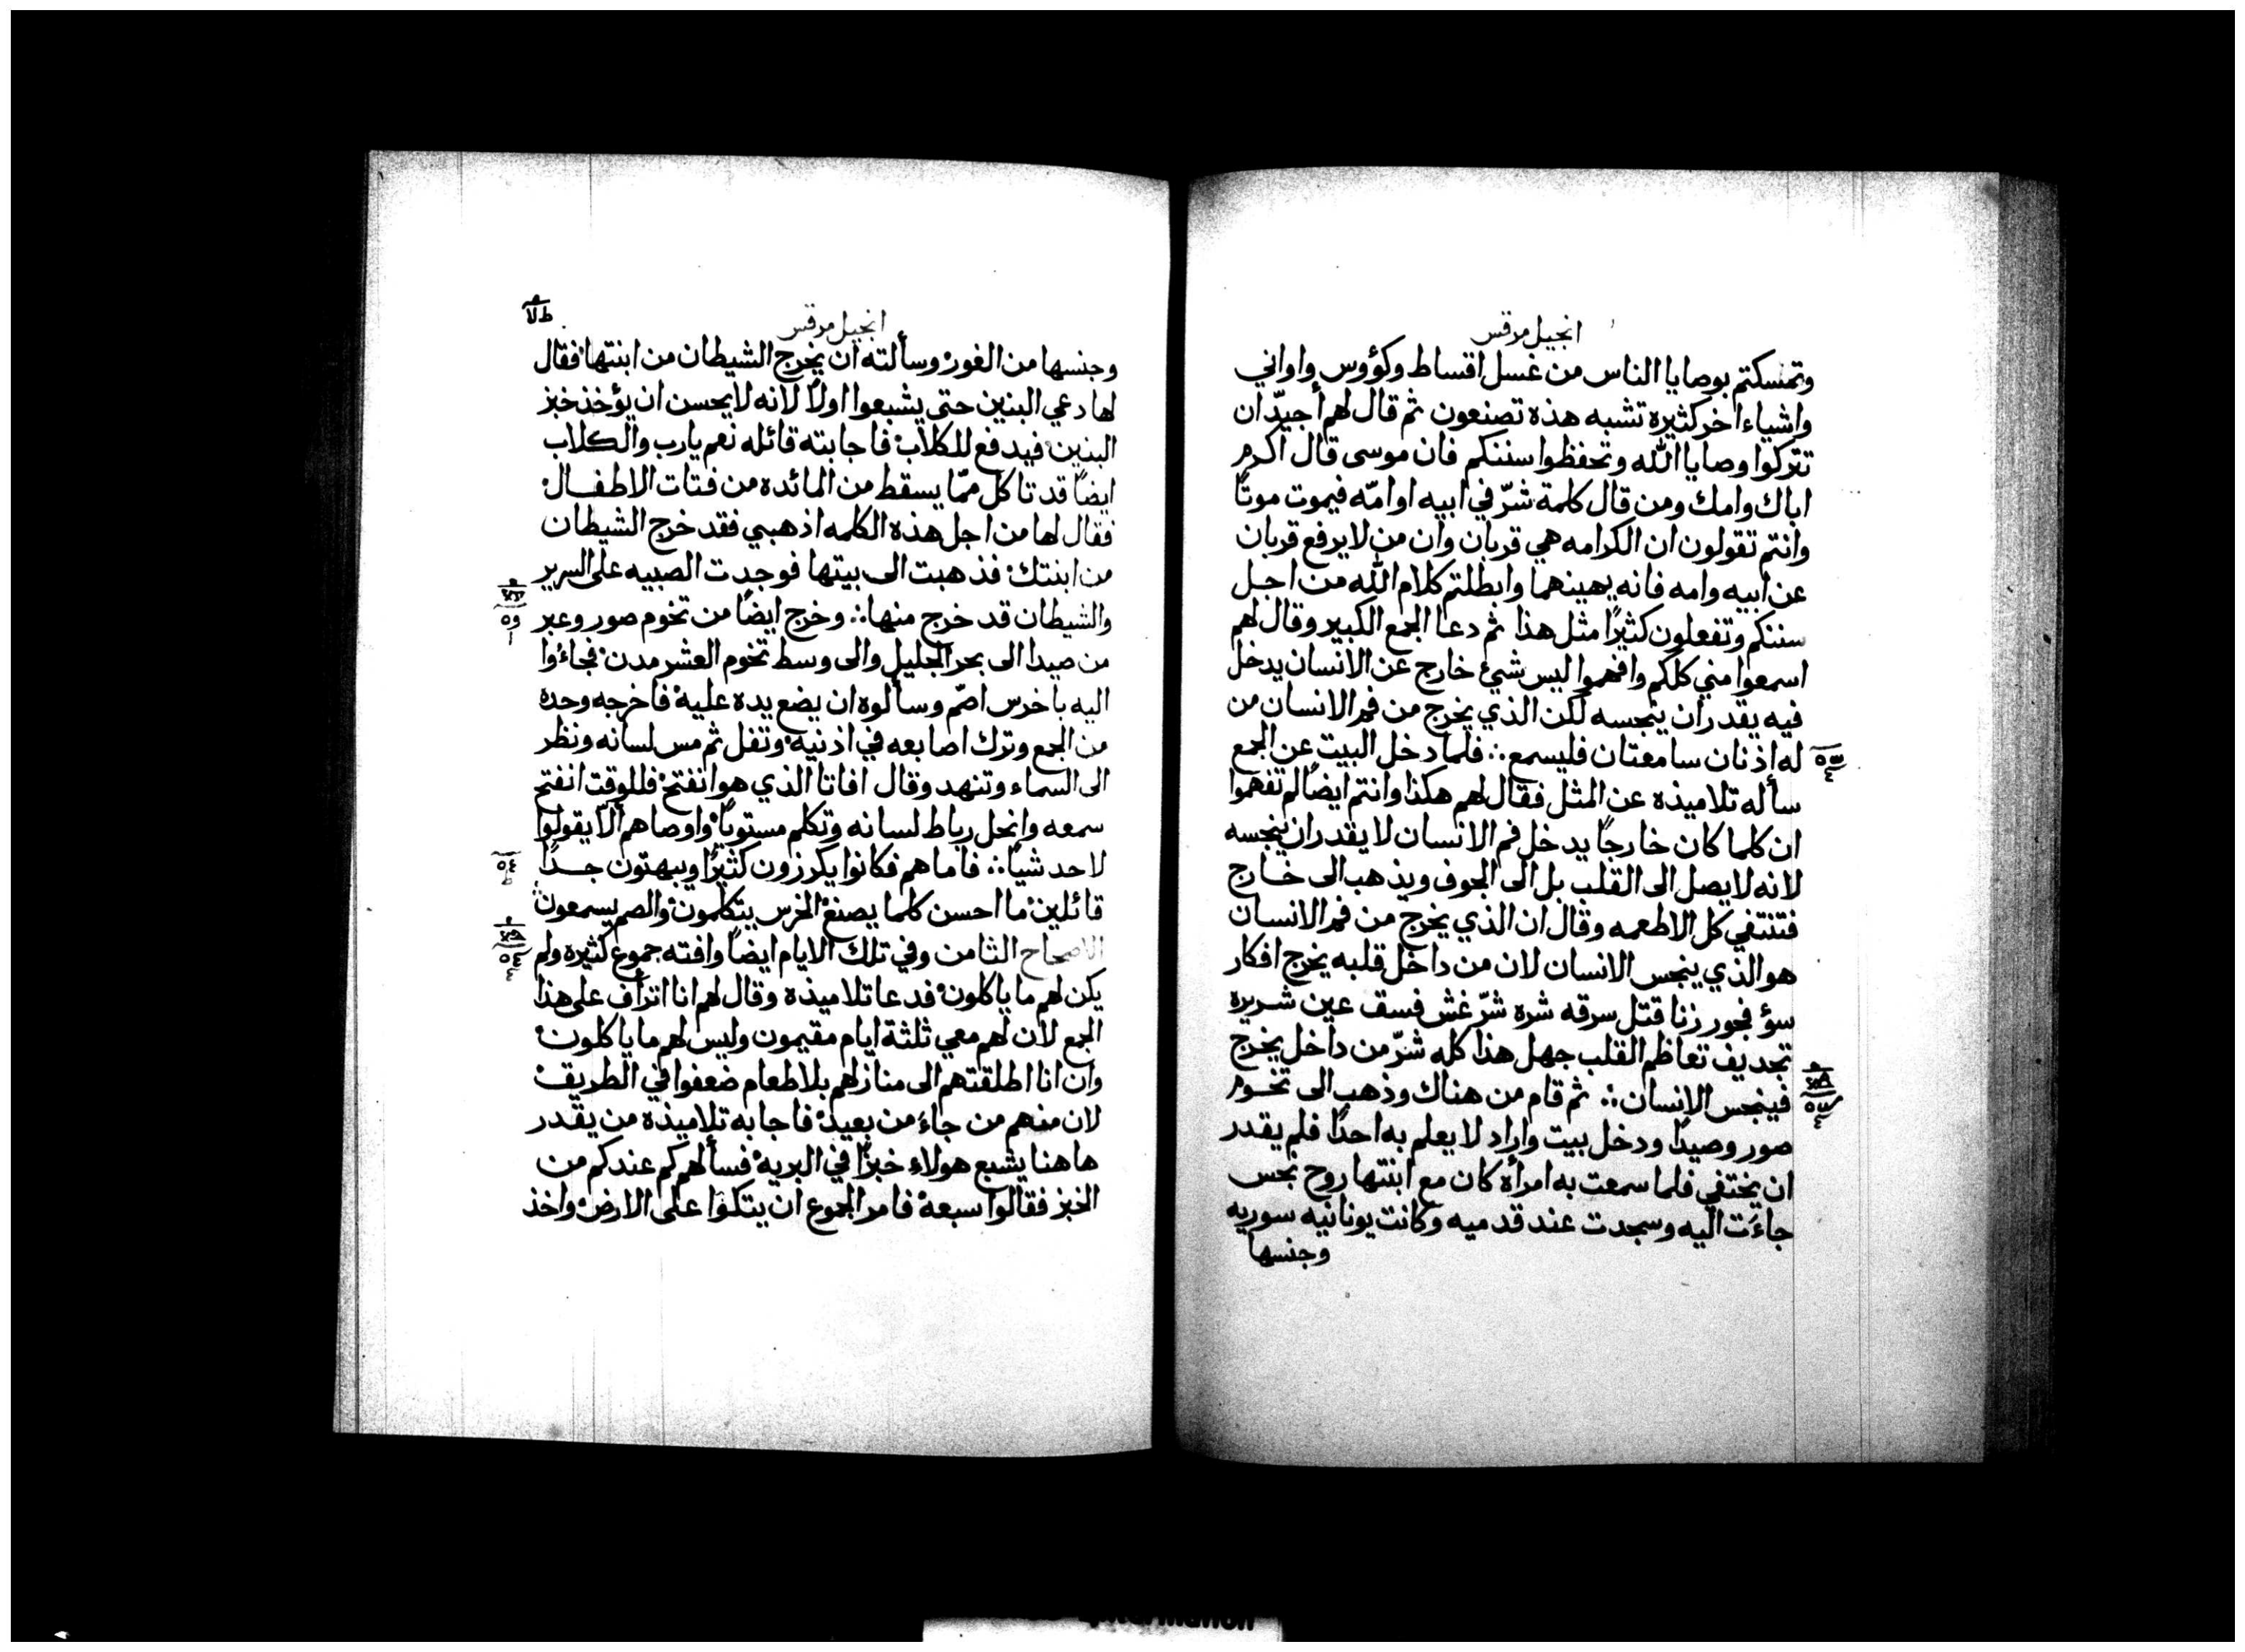 انجيل مرقس
وتمسكتم بوصايا الناس من غسل اقساط وكؤوس واواني
واشياء اخر كثيره تشبه هذه تصنعون ثم قال لهم أجيدّ ان
تتركوا وصايا الله وتحفظوا سننكم فان موسى قال اكرم
اباك وامك ومن قال كلمة شرّ في ابيه او امّه فيموت موتاً
وانتم تقولون ان الكرامه هي قربان وان من لا يرفع قربان
عن ابيه وامه فانه يهينهما وابطلتم كلام الله من اجل
سننكم وتفعلون كثيرًا مثل هذا ثم دعا الجمع الكبير وقال لهم
اسمعوا مني كلكم وافهموا ليس شيئ خارج عن الانسان يدخل
فيه يقدر ان ينجسه لكن الذي يخرج من فم الانسان من
له اذنان سامعتان فليسمع ∴ فلما دخل البيت عن الجمع
سأله تلاميذه عن المثل فقال لهم هكذا وانتم ايضًا لم تفهموا
ان كلما كان خارجًا يدخل فم الانسان لا يقدر ان ينجسه
لانه لا يصل الى القلب بل الى الجوف ويذهب الى خارج
فتنتفي كل الاطعمه وقال ان الذي يخرج من فم الانسان
هو الذي ينجس الانسان لان من داخل قلبه يخرج افكار
سؤ فجور زنا قتل سرقه شره شرّ غش فسق عين شريره
تجديف تعاظم القلب جهل هذا كله شرّ من داخل يخرج
فينجس الانسان ∴ ثم قام من هناك وذهب الى تخوم
صور وصيدا ودخل بيت واراد لا يعلم به احدًا فلم يقدر
ان يختفي فلما سمعت به امرأة كان مع ابنتها روح نجس
جاءَت اليه وسجدت عند قدميه وكانت يونانيه سوريه
وجنسها
انجيل مرقس
وجنسها من الغور وسألته ان يخرج الشيطان من ابنتها فقال
لها دعي البنين حتى يشبعوا اولاً لانه لا يحسن ان يؤخذ خبز
البنين فيدفع للكلاب فاجابته قائله نعم يارب والكلاب
ايضًا قد تاكل ممّا يسقط من المائده من فتات الاطفال
فقال لها من اجل هذه الكلمه اذهبي فقد خرج الشيطان
من ابنتك فذهبت الى بيتها فوجدت الصبيه على السرير
والشيطان قد خرج منها ∴ وخرج ايضًا من تخوم صور وعبر
من صيدا الى بحر الجليل والى وسط تخوم العشر مدن فجاءوا
اليه باخرس اصمّ وسألوه ان يضع يده عليه فاخرجه وحده
من الجمع وترك اصابعه في اذنيه وتفل ثم مس لسانه ونظر
الى السماء وتنهد وقال افاتا الذي هو انفتح فللوقت انفتح
سمعه وانحل رباط لسانه وتكلم مستويًا واوصاهم ألاّ يقولوا
لاحد شيًا ∴ فاما هم فكانوا يكرزون كثيرًا ويبهتون جدًا
قائلين ما احسن كلما يصنع الخرس يتكلمون والصم يسمعون
الاصحاح الثامن وفي تلك الايام ايضًا وافته جموع كثيره ولم
يكن لهم ما ياكلون فدعا تلاميذه وقال لهم انا اتراف على هذا
الجمع لان لهم معي ثلثة ايام مقيمون وليس لهم ما ياكلون
وان انا اطلقتهم الى منازلهم بلا طعام ضعفوا في الطريق
لان منهم من جاءَ من بعيد فاجابه تلاميذه من يقدر
هاهنا يشبع هولاء خبزًا في البريه فسألهم كم عندكم من
الخبز فقالوا سبعه فامر الجموع ان يتكلوا على الارض واخذ